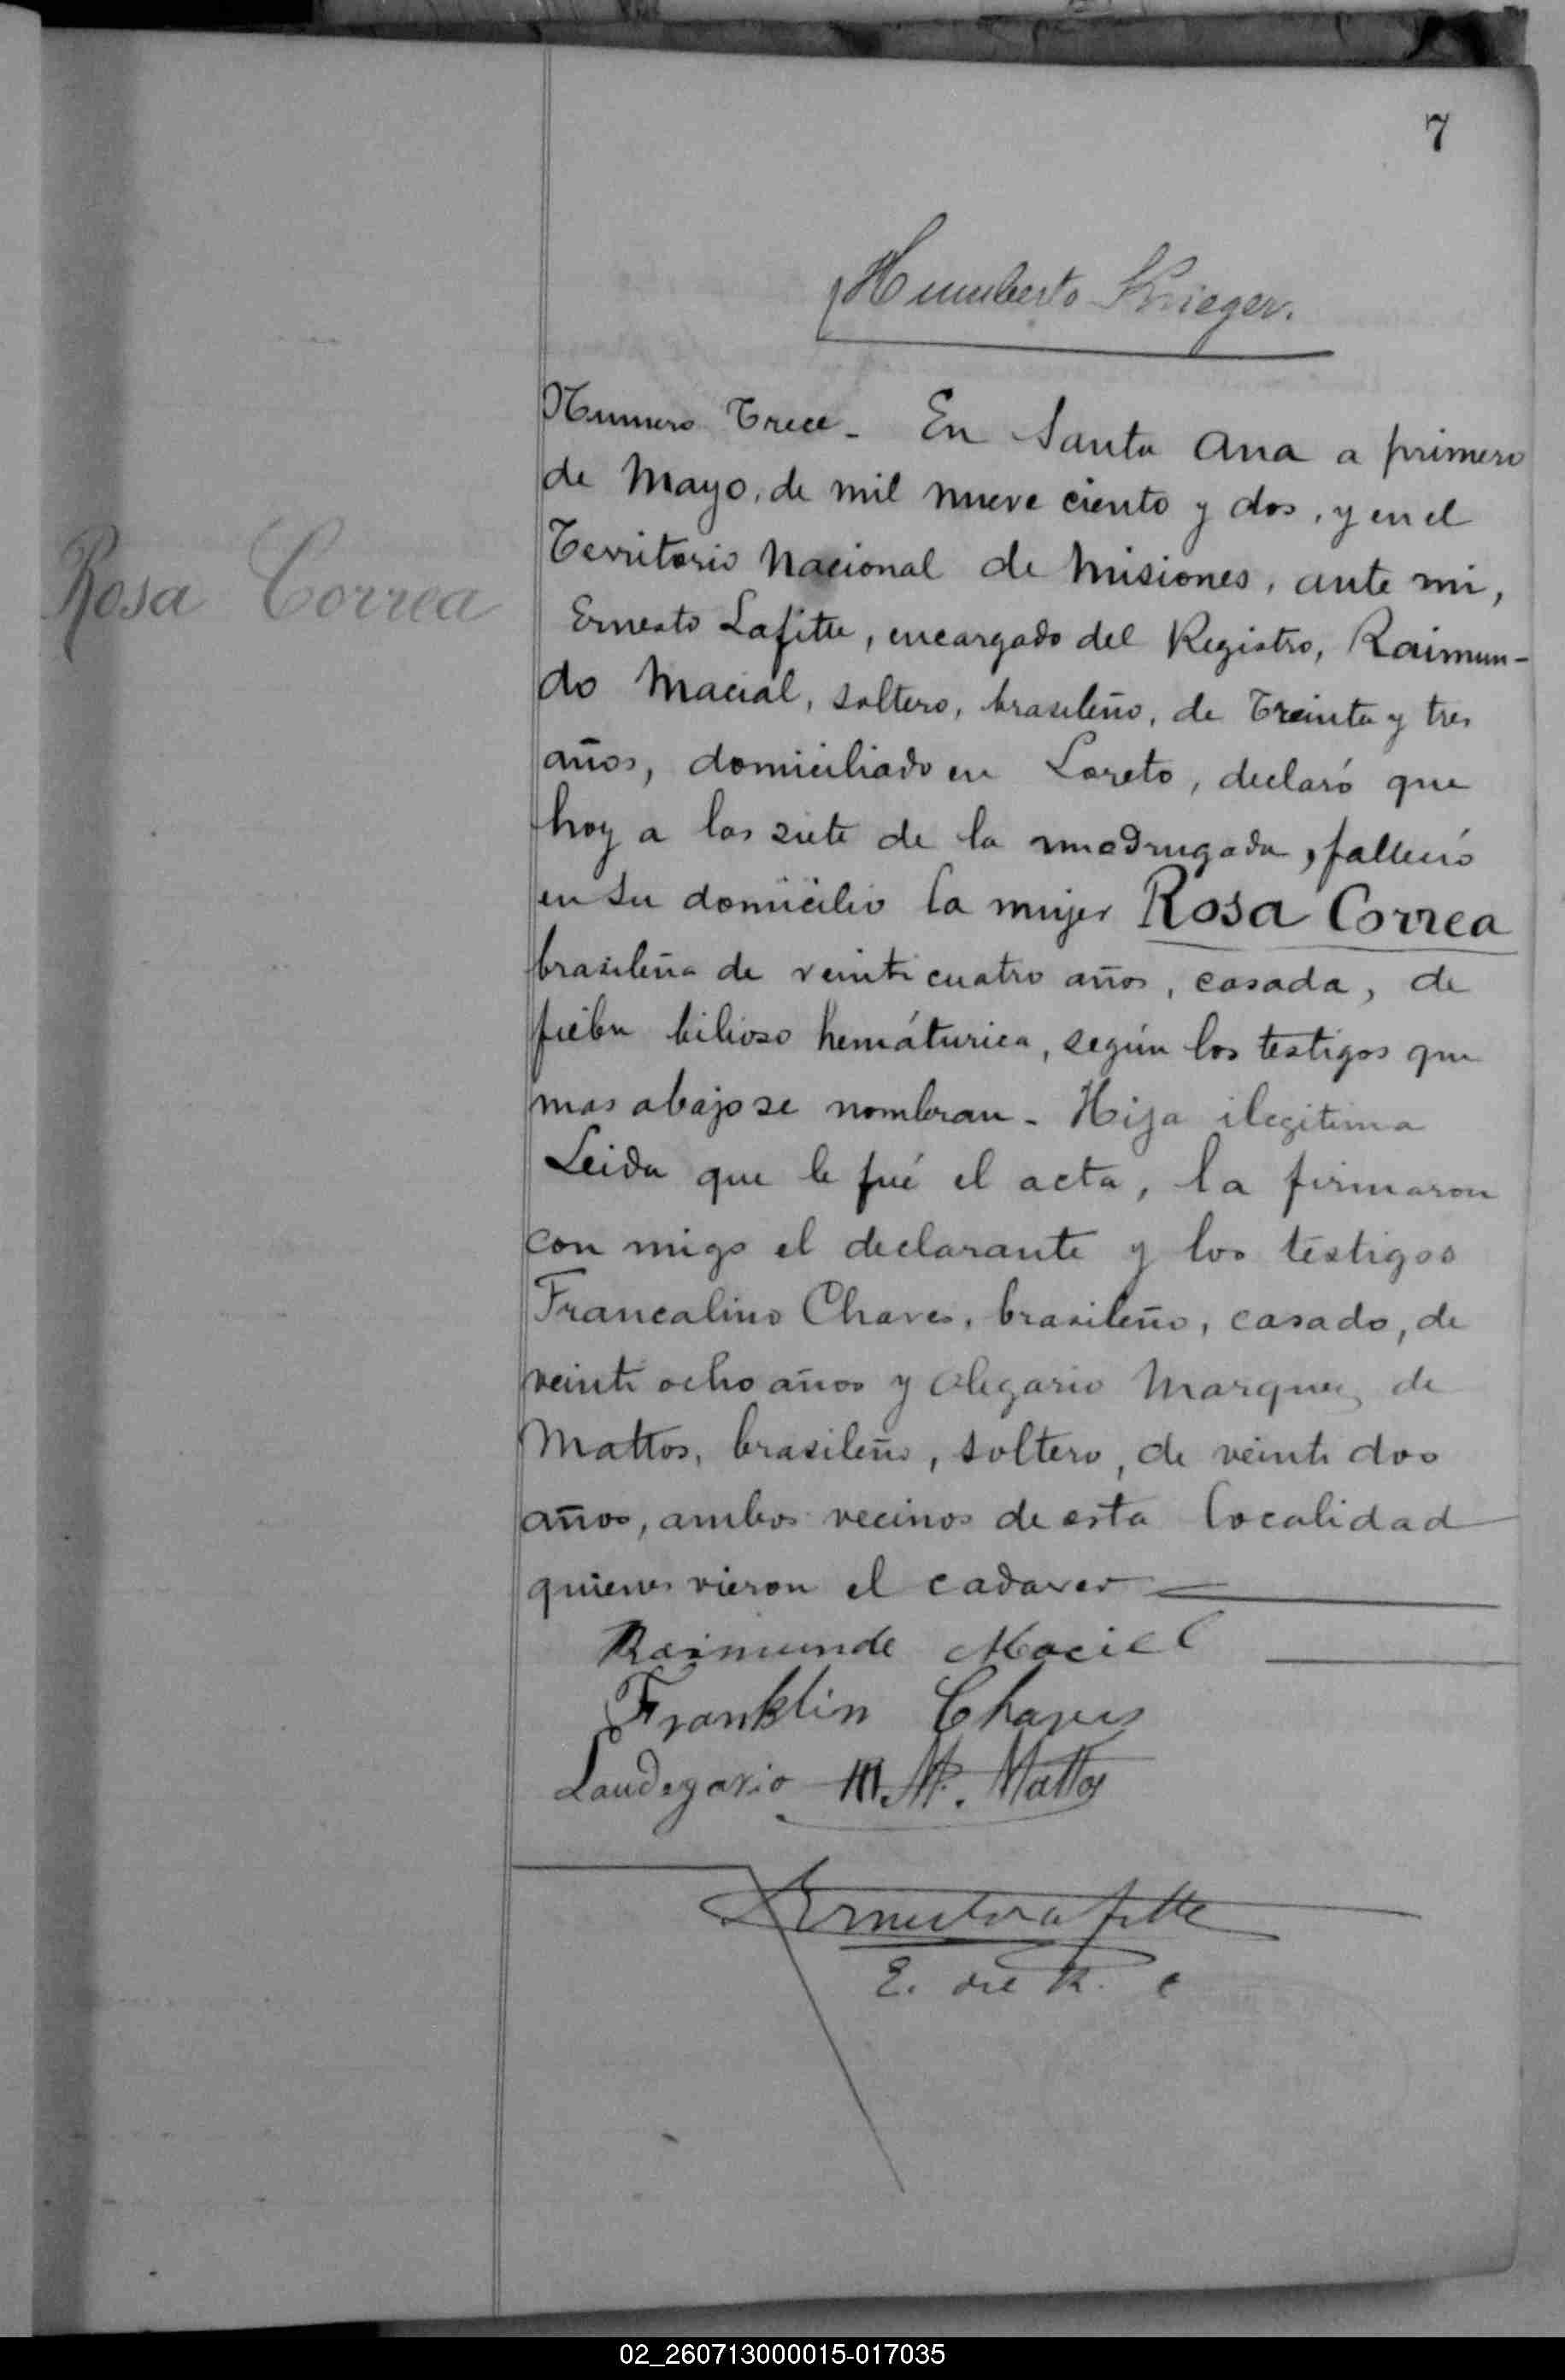 7
Humberto Krieger.
Numero Trece - En Santa Ana a primero
de Mayo, de mil nueve ciento y dos, y en el
Territorio Nacional de Misiones, ante mi,
Rosa Correa
Ernesto Lafitte, encargado del Registro, Raimun-
do Macial, soltero, brasileño, de Treinta y tres
años, domiciliado en Loreto, declaró que
hoy a las siete de la madrugada, falleció
en su domicilio la mujer Rosa Correa
brasileña de veinti cuatro años, casada, de
fiebre bilioso hemáturica, según los testigos que
mas abajo se nombran - Hija ilegitima
Leida que le fué el acta, la firmaron
con migo el declarante y los testigos
Francalino Chaves, brasileño, casado, de
veinti ocho años y Olegario Marquez de
Mattos, brasileño, soltero, de veinti dos
años, ambos vecinos de esta localidad
quienes vieron el cadaver
Raimunde Maciel
Franklin Chaves
Laudegario M. M. Mattos
Ernesto Lafitte
E. del R. C
02_260713000015-017035